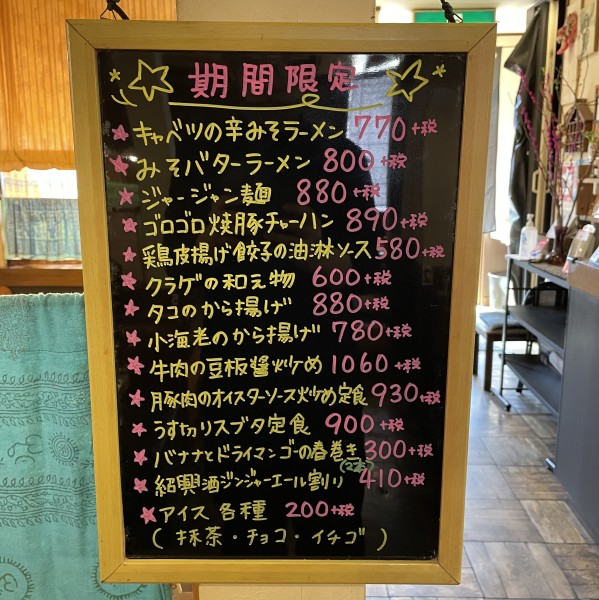 期間限定
キャベツの辛みそラーメン 770+税
みそバターラーメン 800+税
ジャージャン麺 880+税
ゴロゴロ焼豚チャーハン 890+税
鶏皮揚げ餃子の油淋ソース 580+税
クラゲの和え物 600+税
タコのから揚げ 880+税
小海老のから揚げ 780+税
牛肉の豆板醤炒め 1060+税
豚肉のオイスターソース炒め定食 930+税
うす切りスブタ定食 900+税
バナナとドライマンゴーの春巻き(2本) 300+税
紹興酒ジンジャーエール割り 410+税
アイス 各種 200+税
(抹茶・チョコ・イチゴ)